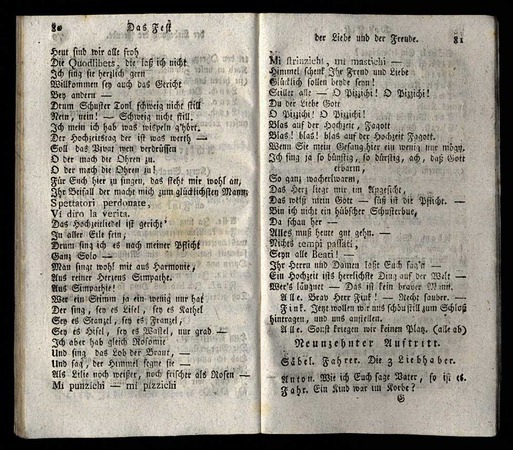 80 Das Fest
Heut sind wir alle froh
Die Quodlibets, die laß ich nicht
Ich sing sie herzlich gern
Willkommen sey auch das Gericht
Bey andern —
Drum Schuster Tonl schweig nicht still
Nein, nein! — Schweig nicht still.
Ich mein ich hab was wispeln g'hört.
Der Hochzeitstag der ist was werth —
Soll das Vivat wen verdrüssen
O der mach die Ohren zu.
O der mach die Ohren zu!
Für Euch hier zu singen, das steht mir wohl an,
Ihr Beifall der macht mich zum glücklichsten Mann,
Spettatori perdonate,
Vi diro la verita.
Das Hochzeitliedel ist gericht'
In aller Eile fein,
Drum sing ich es nach meiner Pflicht
Ganz Solo —
Man singt wohl mit aus Harmonie,
Aus reiner Herzens Simpathie.
Aus Simpathie!
Wer ein Stimm ja ein wenig nur hat
Der sing, sey es Lisel, sey es Kathel
Sey es Stanzel, sey es Franzel,
Sey es Hösel, sey es Wastel, nur grad —
Ich aber hab gleich Rosomie
Und sing das Lob der Braut, —
Und sag, der Himmel segne sie —
Als Lilie noch weißer, noch frischer als Rosen —
Mi punzichi — mi pizzichi
der Liebe und der Freude. 81
Mi strinzichi, mi mastichi —
Himmel schenk Ihr Freud und Liebe
Glücklich sollen beede seyn!
Stiller alle — O Pizzichi! O Pizzichi!
Du der Liebe Gott
O Pizzichi! O Pizzichi!
Blas auf der Hochzeit, Fagott
Blas! blas! blas auf der Hochzeit Fagott.
Wenn Sie mein Gesang hier ein wenig nur mögn.
Ich sing ja so bünstig, so bürstig, ach, daß Gott
erbarm,
So ganz wacherlwarm,
Das Herz liegt mir im Angesicht,
Das weiß mein Gott — süß ist die Pflicht. —
Bin ich nicht ein hübscher Schusterbue,
Da schau her —
Alles muß heute gut gehn. —
Nichts tempi passati,
Seyn alle Beati!
Ihr Herrn und Damen laßt Euch sag'n —
Ein Hochzeit ists herrlichste Ding auf der Welt —
Wer's läugnet — Das ist kein braver Mann.
Alle. Brav Herr Fink! — Recht sauber. —
Fink. Jetzt wollen wir uns schönstill zum Schloß
hintragen, und uns anstellen.
Alle. Sonst kriegen wir keinen Platz. (alle ab)
Neunzehnter Auftritt.
Säbel. Fahrer. Die 3 Liebhaber.
Anton. Wie ich Euch sage Vater, so ist es.
Fahr. Ein Kind war im Korbe?
G